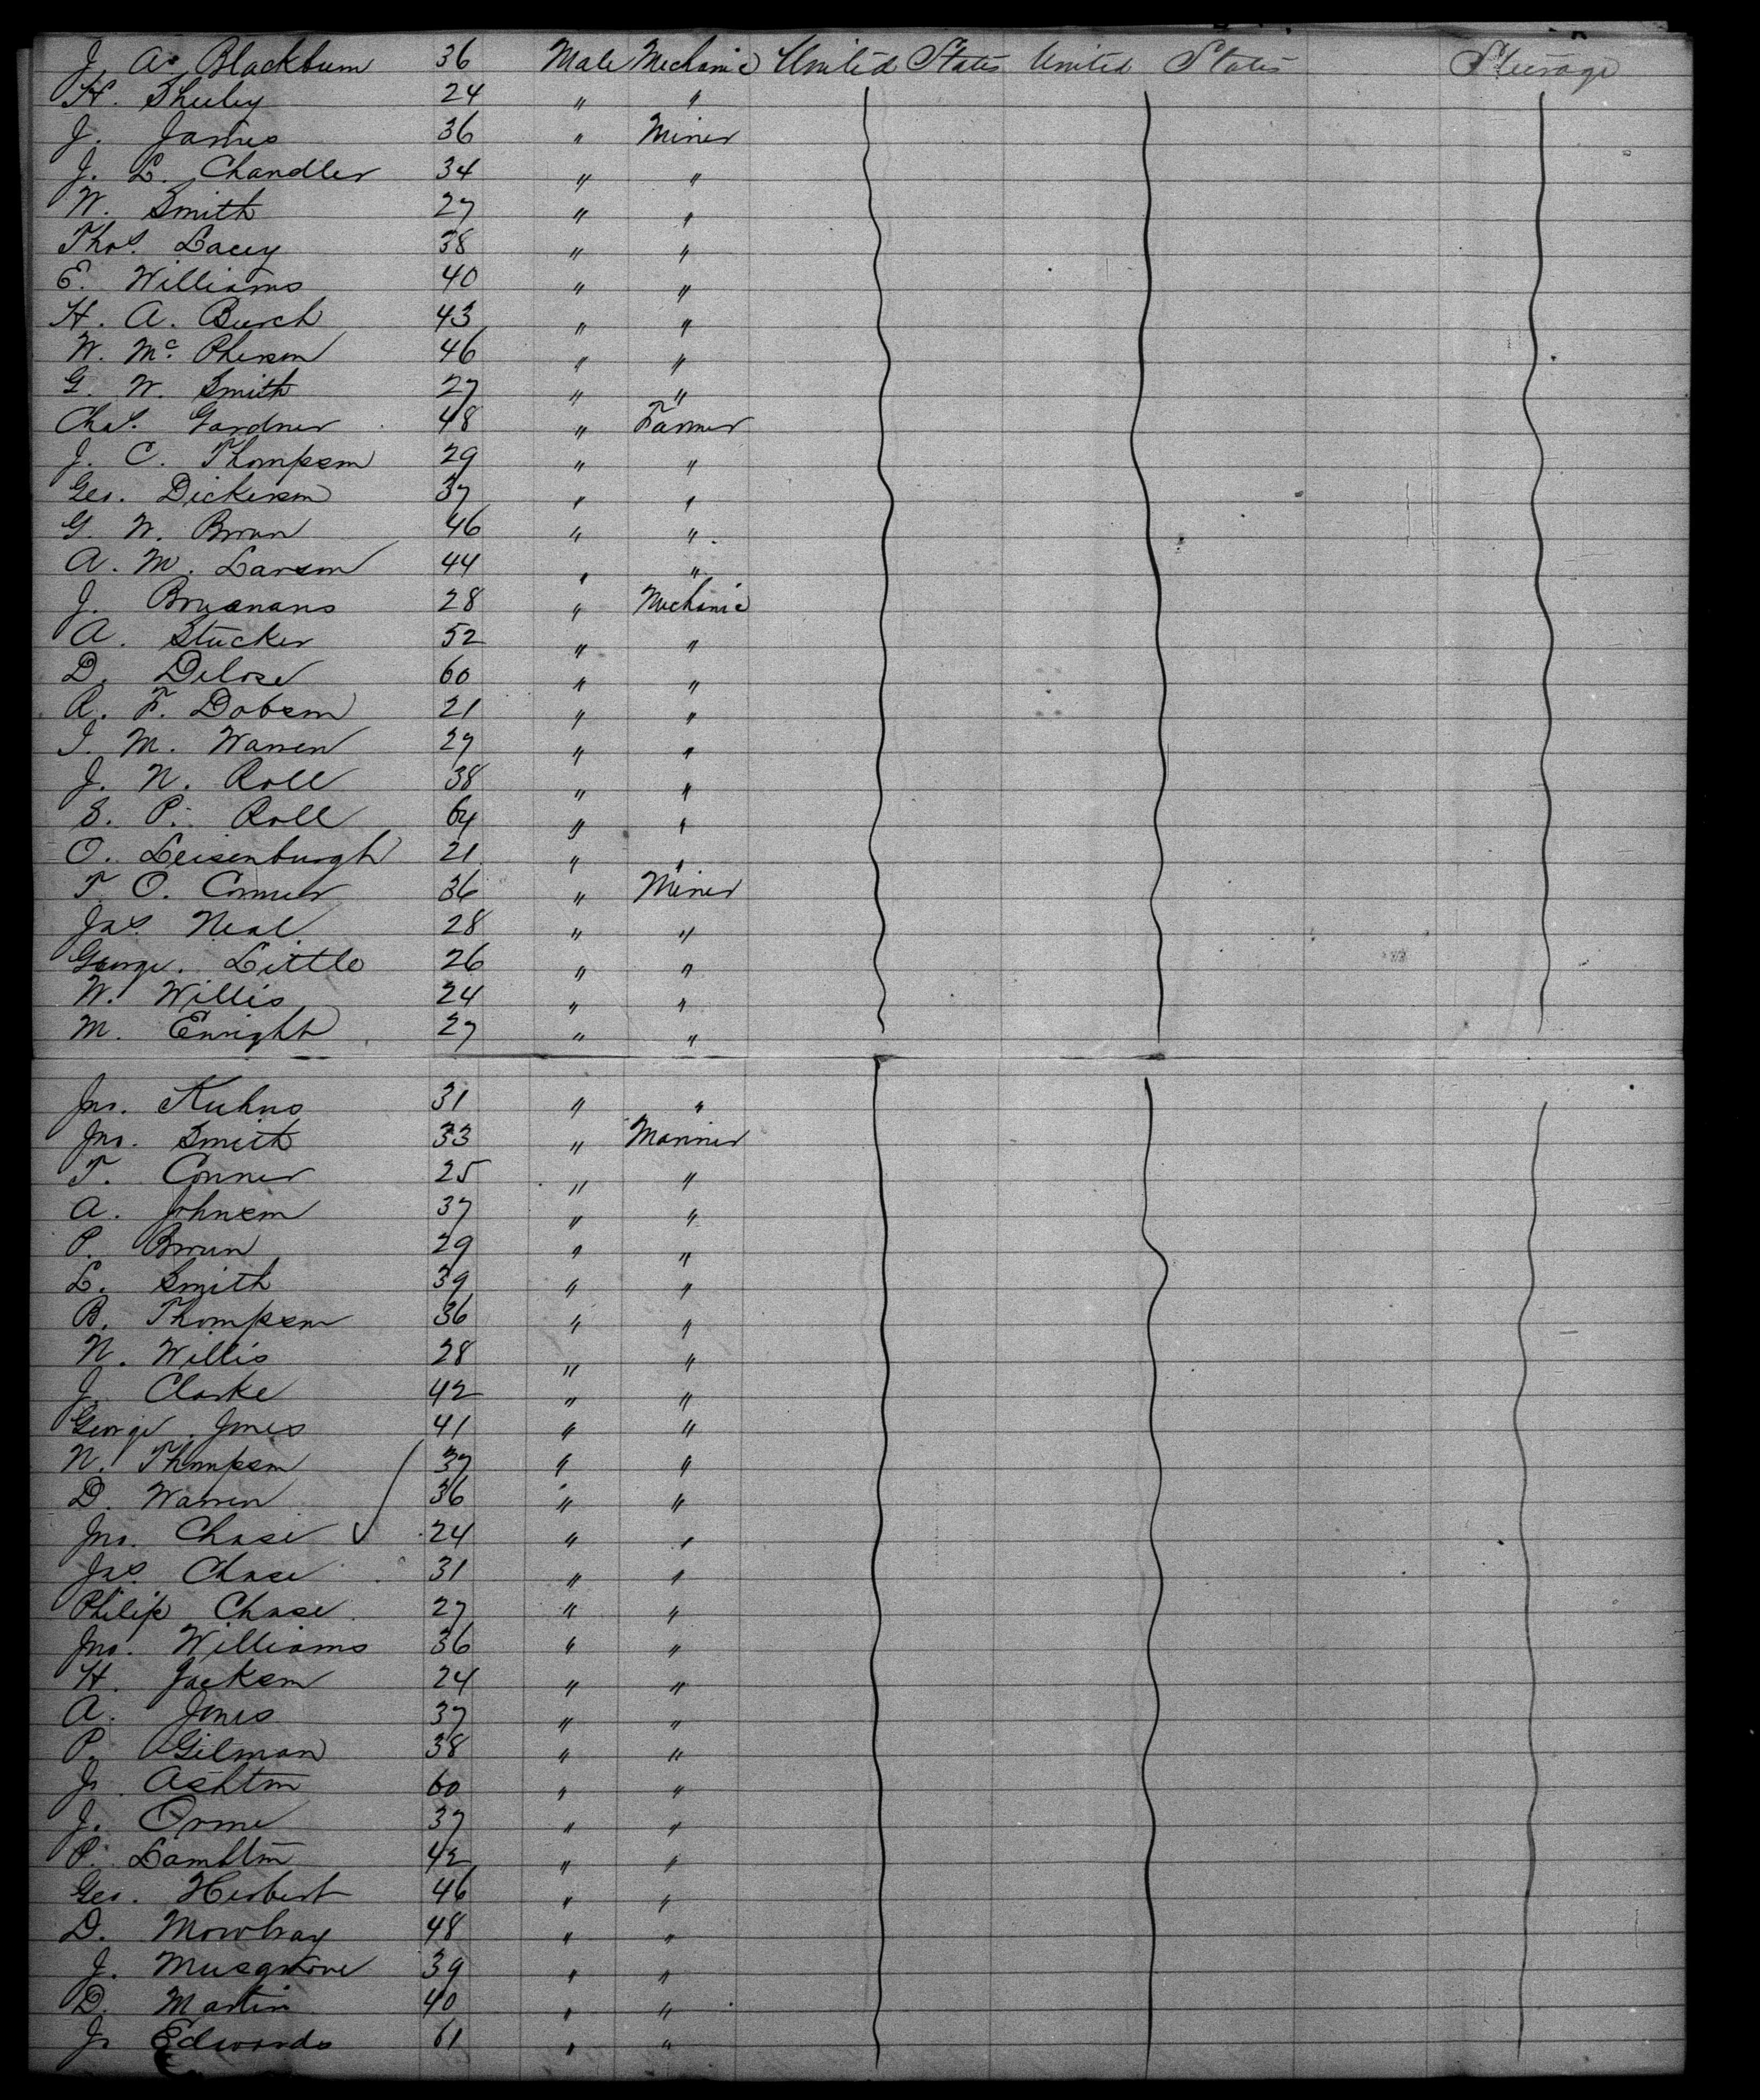 J. A. Blackburn 36 Male Mechanic United States United States Steerage
H. Shuley 24 " "
J. James 36 " Miner
J. L. Chandler 34 " "
W. Smith 27 " "
Thos. Lacey 38 " "
E. Williams 40 " "
H. A. Burch 43 " "
W. McPherson 46 " "
G. W. Smith 27 " "
Chas. Gardner 48 " Farmer
J. C. Thompson 29 " "
Geo. Dickerson 37 " "
G. W. Brown 46 " "
A. M. Larson 44 " "
J. 28 " Mechanic
A. Stucker 52 " "
D. Delose 60 " "
R. F. Dobson 21 " "
I. M. Warren 27 " "
J. N. Roll 38 " "
S. P. Roll 64 " "
O. Leisenburgh 21 " "
T. O. Conner 36 " Miner
Jas. Neal 28 " "
George. Little 26 " "
W. Willis 24 " "
M. Enright 27 " "
Jno. Kuhns 31 " "
Jno. Smith 33 " Mariner
T. Conner 25 " "
A. Johnson 37 " "
P. Brown 29 " "
L. Smith 39 " "
B. Thompson 36 " "
N. Willis 28 " "
J. Clarke 42 " "
George Jones 41 " "
N. Thompson 37 " "
D. Warren 36 " "
Jno. Chase 24 " "
Jas. Chase 31 " "
Philip Chase 27 " "
Jno. Williams 36 " "
H. Jackson 24 " "
A. Jones 37 " "
P. Gilman 38 " "
J. Ashton 60 " "
J. Orme 37 " "
P. Lambton 42 " "
Geo. Herbert 46 " "
D. Mowbray 48 " "
J. Musgrove 39 " "
D. Martin 40 " "
J. Edwards 61 " "